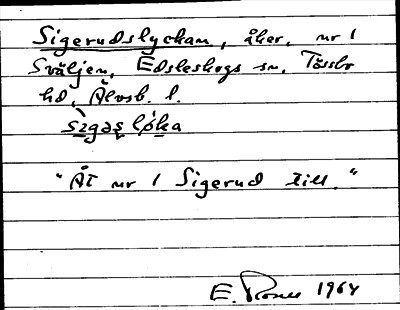 Sigerudslyckan, åker, nr 1
Svåljen, Edsleskogs sn, Tössbo
hd, Älvsb. l.
sìgəṣ lỳka
"Åt nr 1 Sigerud till."
E. 1964